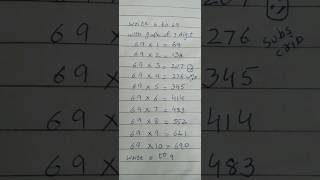 with gape of 1 digit
69 × 1 = 69
69 × 2 = 138
69 × 3 = 207
69 × 4 = 276
69 × 5 = 345
69 × 6 = 414
69 × 7 = 483
69 × 8 = 552
69 × 9 = 621
69 × 10 = 690
write 0 to 9
69
69
69
69
276
subs
crib
345
414
483